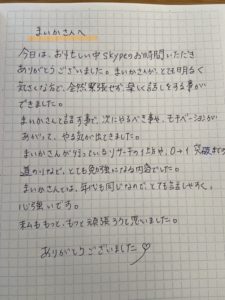 まいかさんへ
今日は、お忙しい中 Skypeのお時間いただき
ありがとうございました。まいかさんが、とても明るく
気さくな方で、全然緊張せず、楽しく話しをする事が
できました。
まいかさんと話す事で、次にやるべき事や、モチベーションが
あがって、やる気が出てきました。
まいかさんが行っているリサーチの仕方や、0→1突破までの
道のりなど、とても勉強になる内容でした。
まいかさんとは、年代も同じなので、とても話しやすく、
心強いです。
私ももっと、もっと頑張ろうと思いました。
ありがとうございました♡